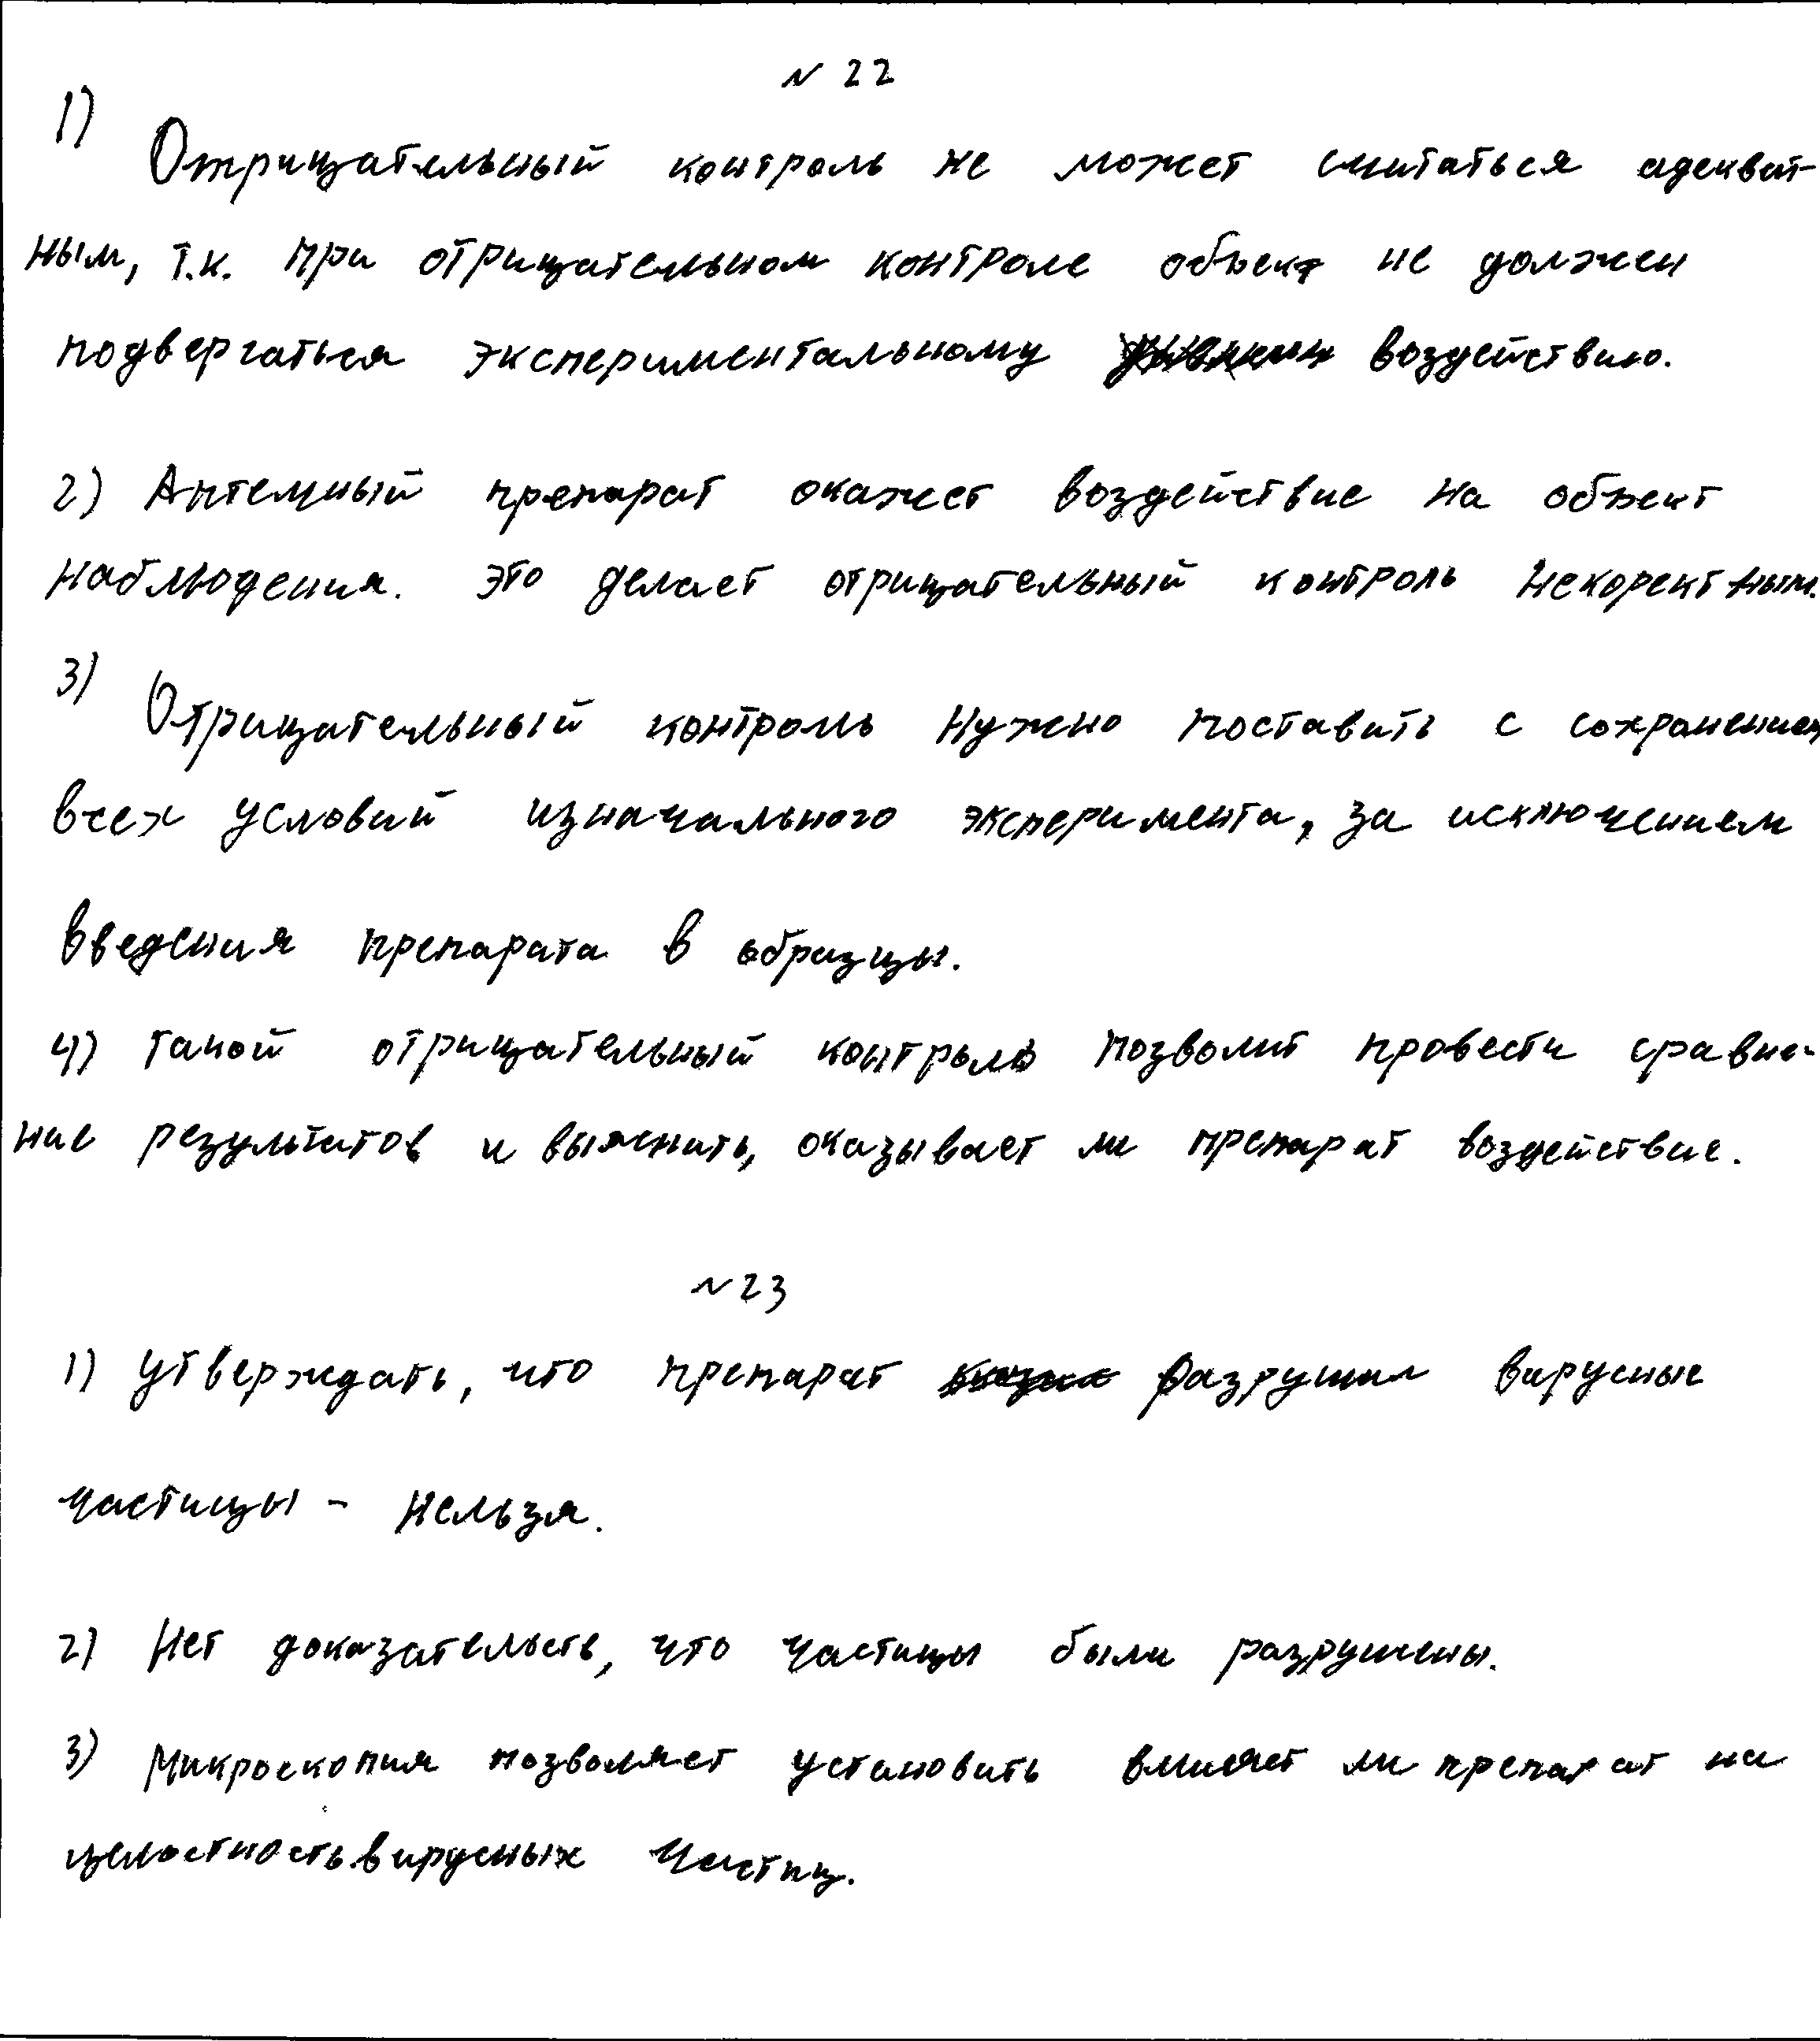 № 22
1)
Отрицательный контроль не может считаться адекват-
ным, т.к. при отрицательном контроле объект не должен
подвергаться экспериментальному воздействию.
2) Аптечный препарат окажет воздействие на объект
наблюдения. Это делает отрицательный контроль некоректным.
3)
Отрицательный контроль нужно поставить с сохранением
всех условий изначального эксперимента, за исключением
введения препарата в образцы.
4) Такой отрицательный контроль позволит провести сравне-
ние результатов и выяснить, оказывает ли препарат воздействие.
№ 23
1) Утверждать, что препарат разрушил вирусные
частицы - нельзя.
2) Нет доказательств, что частицы были разрушены.
3) Микроскопия позволяет установить влияет ли препарат на
целостность вирусных частиц.